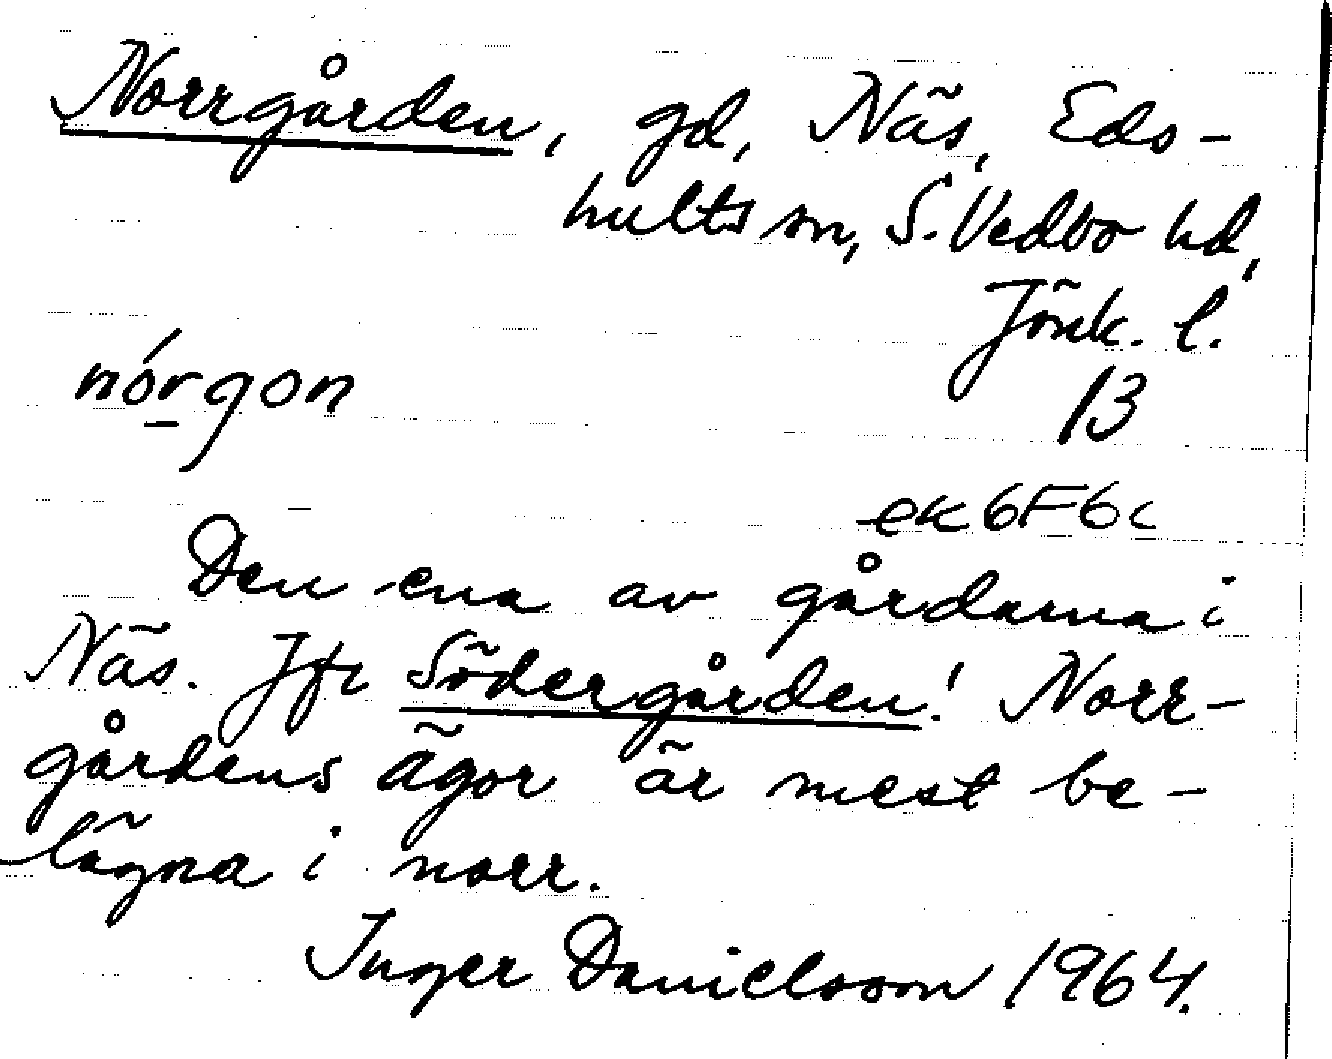 Norrgården, gd, Näs, Eds-
hults sn, S. Vedbo hd,
Jönk. l.
nórgon
13
ek 6F6c
Den ena av gårdarna i
Näs. Jfr Södergården! Norr-
gårdens ägor är mest be-
lägna i norr.
Inger Danielsson 1964.